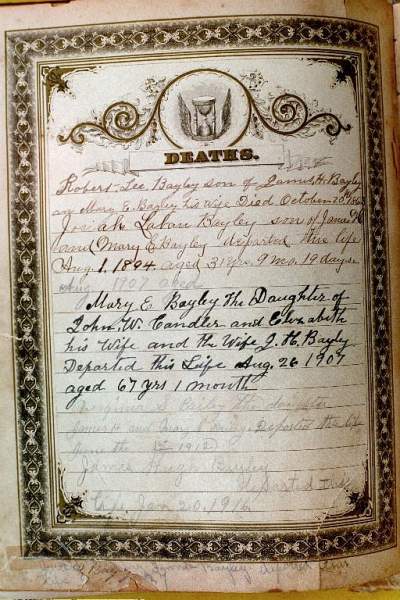 DEATHS.
Robert Lee Bayley son of James H. Bayley
an Mary E. Bayley his Wife Died October 20
Josiah Laban Bayley son of James H
and Mary E Bayley departed this life
Aug 1. 1894. aged 31 yrs. 9 mo. 19 days.
Aug 1907 aged
Mary E Bayley The Daughter of
John. W. Candler and Elizabeth
his Wife and the Wife J. H. Bayley
Departed this Life Aug. 26 1907
aged 67 yrs 1 month
Bayley The daughter
James H and Mary E Bayley Departed the life
June the 1st 1912
James Hugh Bayley
departed this
Life Jan 20. 1916
Bayley